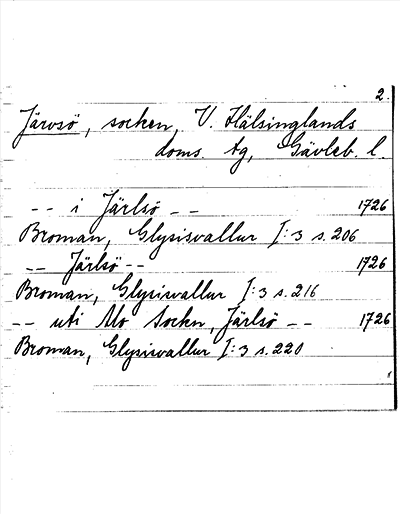 2.
Järvsö, socken, V. Hälsinglands
doms. tg, Gävleb. l.
-- i Järlsö -- 1726
Broman, Glysisvallur I:3 s. 206
-- Järlsö -- 1726
Broman, Glysisvallur I:3 s. 216
-- uti Mo Sockn, Järlsö -- 1726
Broman, Glysisvallur I:3 s. 220